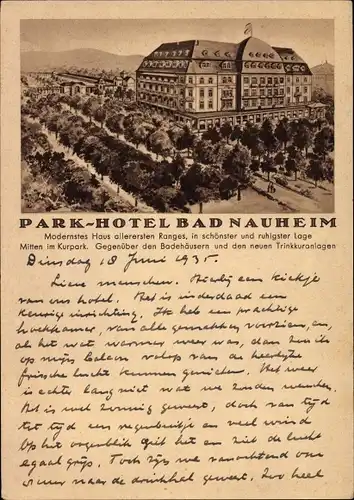 PARK-HOTEL BAD NAUHEIM
Modernstes Haus allerersten Ranges, in schönster und ruhigster Lage
Mitten im Kurpark. Gegenüber den Badehäusern und den neuen Trinkkuranlagen
Dinsdag 18 Juni 1935.
Lieve menschen. Hierbij een kiekje
van ons hotel. Het is inderdaad een
keurige inrichting. Ik heb een prachtige
hoekkamer, van alle gemakken voorzien, en
als het wat warmer weer was, dan zou ik
op mijn balcon volop van de heerlijke
frissche lucht kunnen genieten. Het weer
is echter lang niet wat we zouden wenschen.
Het is wel zonnig geweest, doch van tijd
tot tijd een regenbuitje en veel wind
Op het oogenblik giet het en ziet de lucht
egaal grijs. Toch zijn we vanochtend om
naar de drinkhal geweest. Zoo heel